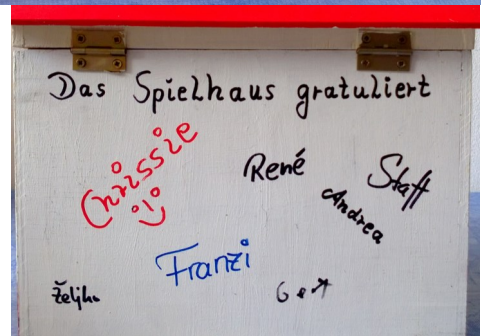 Das Spielhaus gratuliert
Chrissie
René
Staff
Andrea
Franzi
Željko